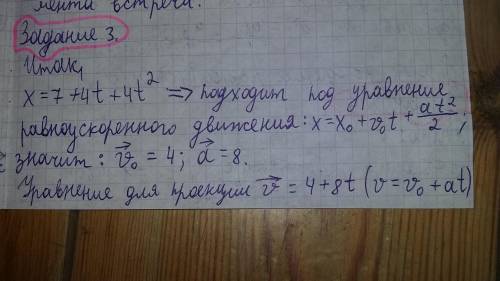 мента встречи.
Задание 3.
Итак,
x = 7 + 4t + 4t² ⇒ подходит под уравнение
равноускоренного движения: x = x₀ + v₀t + at²/2;
значит: v⃗₀ = 4; a⃗ = 8.
Уравнение для проекции v⃗ = 4 + 8t (v = v₀ + at)